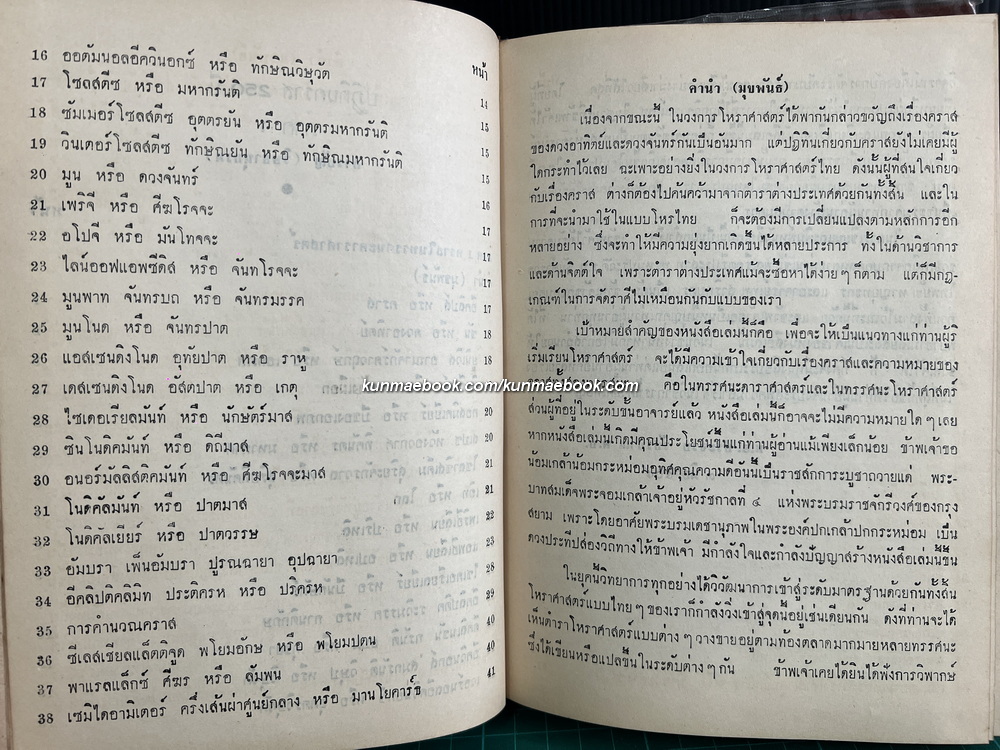 หน้า
16 ออตัมนอลอีควินอกซ์ หรือ ทักษิณวิษุวัต 14
17 โซลสตีซ หรือ มหากรันติ 15
18 ซัมเมอร์โซลสตีซ อุตตรยัน หรือ อุตตรมหากรันติ 15
19 วินเตอร์โซลสตีซ ทักษิณยัน หรือ ทักษิณมหากรันติ 15
20 มูน หรือ ดวงจันทร์ 16
21 เพริจี หรือ ศีฆโรจจะ 17
22 อโปจี หรือ มันโทจจะ 17
23 ไลน์ออฟแอพซีดิส หรือ จันทโรจจะ 17
24 มูนพาท จันทรบถ หรือ จันทรมรรค 18
25 มูนโนด หรือ จันทรปาต 18
26 แอสเซนดิงโนด อุทัยปาต หรือ ราหู
27 เดสเซนดิงโนด อัสตปาต หรือ เกตุ
28 ไซเดอเรียลมันท์ หรือ นักษัตร์มาส 20
29 ซินโนดิคมันท์ หรือ ดิถีมาส 20
30 อนอร์มัลลิสติคมันท์ หรือ ศีฆโรจจะมาส 21
31 โนดิคัลมันท์ หรือ ปาตมาส 21
32 โนดิคัลเยียร์ หรือ ปาตวรรษ 22
33 อัมบรา เพ็นอัมบรา ปูรณฉายา อุปฉายา 23
34 อีคลิปติคลิมิท ประติครห หรือ ปริครห 28
35 การคำนวณคราส 29
36 ซีเลสเชียลแล็ตติจูด พโยมอักษ หรือ พโยมปตน 40
37 พาแรลแล็กซ์ ศีฆร หรือ ลัมพน 40
38 เซมิไดอามิเตอร์ ครึ่งเส้นผ่าศูนย์กลาง หรือ มานโยคาร์ธ 41
คำนำ (มุขพันธ์)
เนื่องจากขณะนี้ ในวงการโหราศาสตร์ได้พากันกล่าวขวัญถึงเรื่องคราส
ของดวงอาทิตย์และดวงจันทร์กันเป็นอันมาก แต่ปฏิทินเกี่ยวกับคราสยังไม่เคยมีผู้
ใดกระทำไว้เลย ฉะเพาะอย่างยิ่งในวงการโหราศาสตร์ไทย ดังนั้นผู้ที่สนใจเกี่ยว
กับเรื่องคราส ต่างก็ต้องไปค้นคว้ามาจากตำราต่างประเทศด้วยกันทั้งสิ้น และใน
การที่จะนำมาใช้ในแบบโหรไทย ก็จะต้องมีการเปลี่ยนแปลงตามหลักการอีก
หลายอย่าง ซึ่งจะทำให้มีความยุ่งยากเกิดขึ้นได้หลายประการ ทั้งในด้านวิชาการ
และด้านจิตต์ใจ เพราะตำราต่างประเทศแม้จะซื้อหาได้ง่าย ๆ ก็ตาม แต่ก็มีกฎ-
เกณฑ์ในการจัดราศีไม่เหมือนกันกับแบบของเรา
เป้าหมายสำคัญของหนังสือเล่มนี้ก็คือ เพื่อจะให้เป็นแนวทางแก่ท่านผู้ริ
เริ่มเรียนโหราศาสตร์ จะได้มีความเข้าใจเกี่ยวกับเรื่องคราสและความหมายของ
คือในทรรศนะดาราศาสตร์และในทรรศนะโหราศาสตร์
kunmaebook.com/kunmaebook.com
ส่วนผู้ที่อยู่ในระดับชั้นอาจารย์แล้ว หนังสือเล่มนี้ก็อาจจะไม่มีความหมายใด ๆ เลย
หากหนังสือเล่มนี้เกิดมีคุณประโยชน์ขึ้นแก่ท่านผู้อ่านแม้เพียงเล็กน้อย ข้าพเจ้าขอ
น้อมเกล้าน้อมกระหม่อมอุทิศคุณความดีอันนี้เป็นราชสักการะบูชาถวายแด่ พระ-
บาทสมเด็จพระจอมเกล้าเจ้าอยู่หัวรัชกาลที่ ๔ แห่งพระบรมราชจักรีวงศ์ของกรุง
สยาม เพราะโดยอาศัยพระบรมเดชานุภาพในพระองค์ปกเกล้าปกกระหม่อม เป็น
ดวงประทีปส่องวิถีทางให้ข้าพเจ้า มีกำลังใจและกำลังปัญญาสร้างหนังสือเล่มนี้ขึ้น
ในยุคนี้วิทยาการทุกอย่างได้วิวัฒนาการเข้าสู่ระดับมาตรฐานด้วยกันทั้งสิ้น
โหราศาสตร์แบบไทย ๆ ของเราก็กำลังวิ่งเข้าสู่จุดนี้อยู่เช่นเดียวกัน ดังที่ท่านจะได้
เห็นตำราโหราศาสตร์แบบต่าง ๆ วางขายอยู่ตามท้องตลาดมากมายหลายทรรศนะ
ซึ่งได้เขียนหรือแปลขึ้นในระดับต่าง ๆ กัน ข้าพเจ้าเคยได้ยินได้ฟังการวิพากษ์